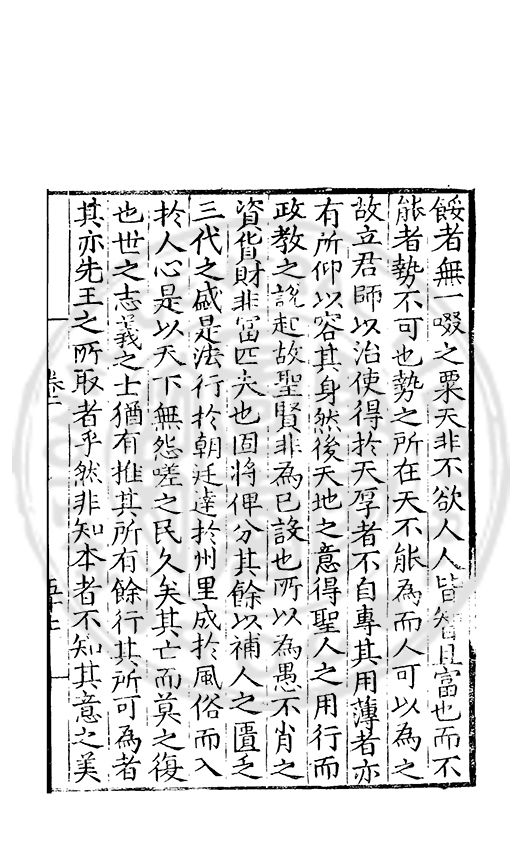 餒者無一啜之粟天非不欲人人皆智且富也而不
能者勢不可也勢之所在天不能為而人可以為之
故立君師以治使得於天厚者不自專其用薄者亦
有所仰以容其身然後天地之意得聖人之用行而
政教之說起故聖賢非為已設也所以為愚不肖之
資貨財非富匹夫也固將俾分其餘以補人之匱乏
三代之盛是法行於朝廷達於州里成於風俗而入
於人心是以天下無怨嗟之民久矣其亡而莫之復
也世之志義之士猶有推其所有餘行其所可為者
其亦先王之所取者乎然非知本者不知其意之美